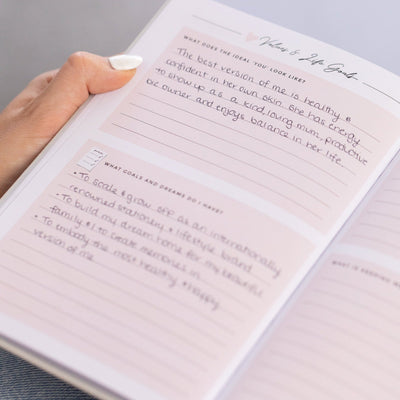 Values & Life Goals
WHAT DOES THE IDEAL 'YOU' LOOK LIKE?
The best version of me is healthy &
confident in her own skin. She has energy
to show up as a kind, loving mum, productive
biz owner and enjoys balance in her life.
WHAT GOALS AND DREAMS DO I HAVE?
• To scale & grow as an internationally
renowned stationery + lifestyle brand
• To build my dream home for my beautiful
family & to create memories in
• To embody the most healthy & happy
version of me
WHAT IS KEEPING